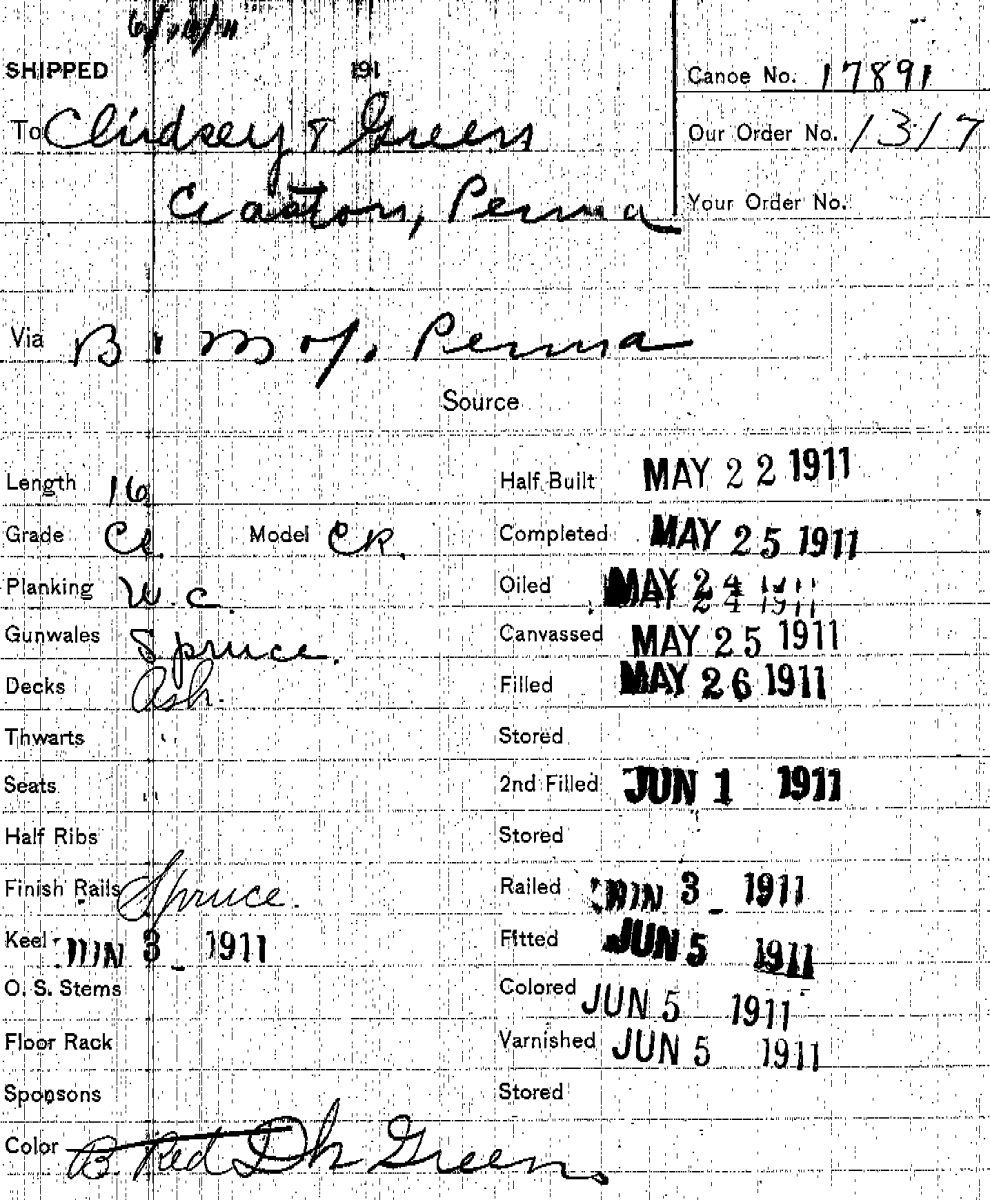 SHIPPED 191
Canoe No. 17891
To Chidsey & Green
Our Order No. 1317
Penna
Your Order No.
Via B & M of. Penna
Source
Length 16
Half Built MAY 22 1911
Grade Model CR.
Completed MAY 25 1911
Planking W. C.
Oiled MAY 24 1911
Gunwales Spruce.
Canvassed MAY 25 1911
Decks Ash.
Filled MAY 26 1911
Thwarts "
Stored
Seats "
2nd Filled JUN 1 1911
Half Ribs
Stored
Finish Rails Spruce.
Railed JUN 3 1911
Keel JUN 3 1911
Fitted JUN 5 1911
O. S. Stems
Colored JUN 5 1911
Floor Rack
Varnished JUN 5 1911
Sponsons
Stored
Color B. Red Dk Green.